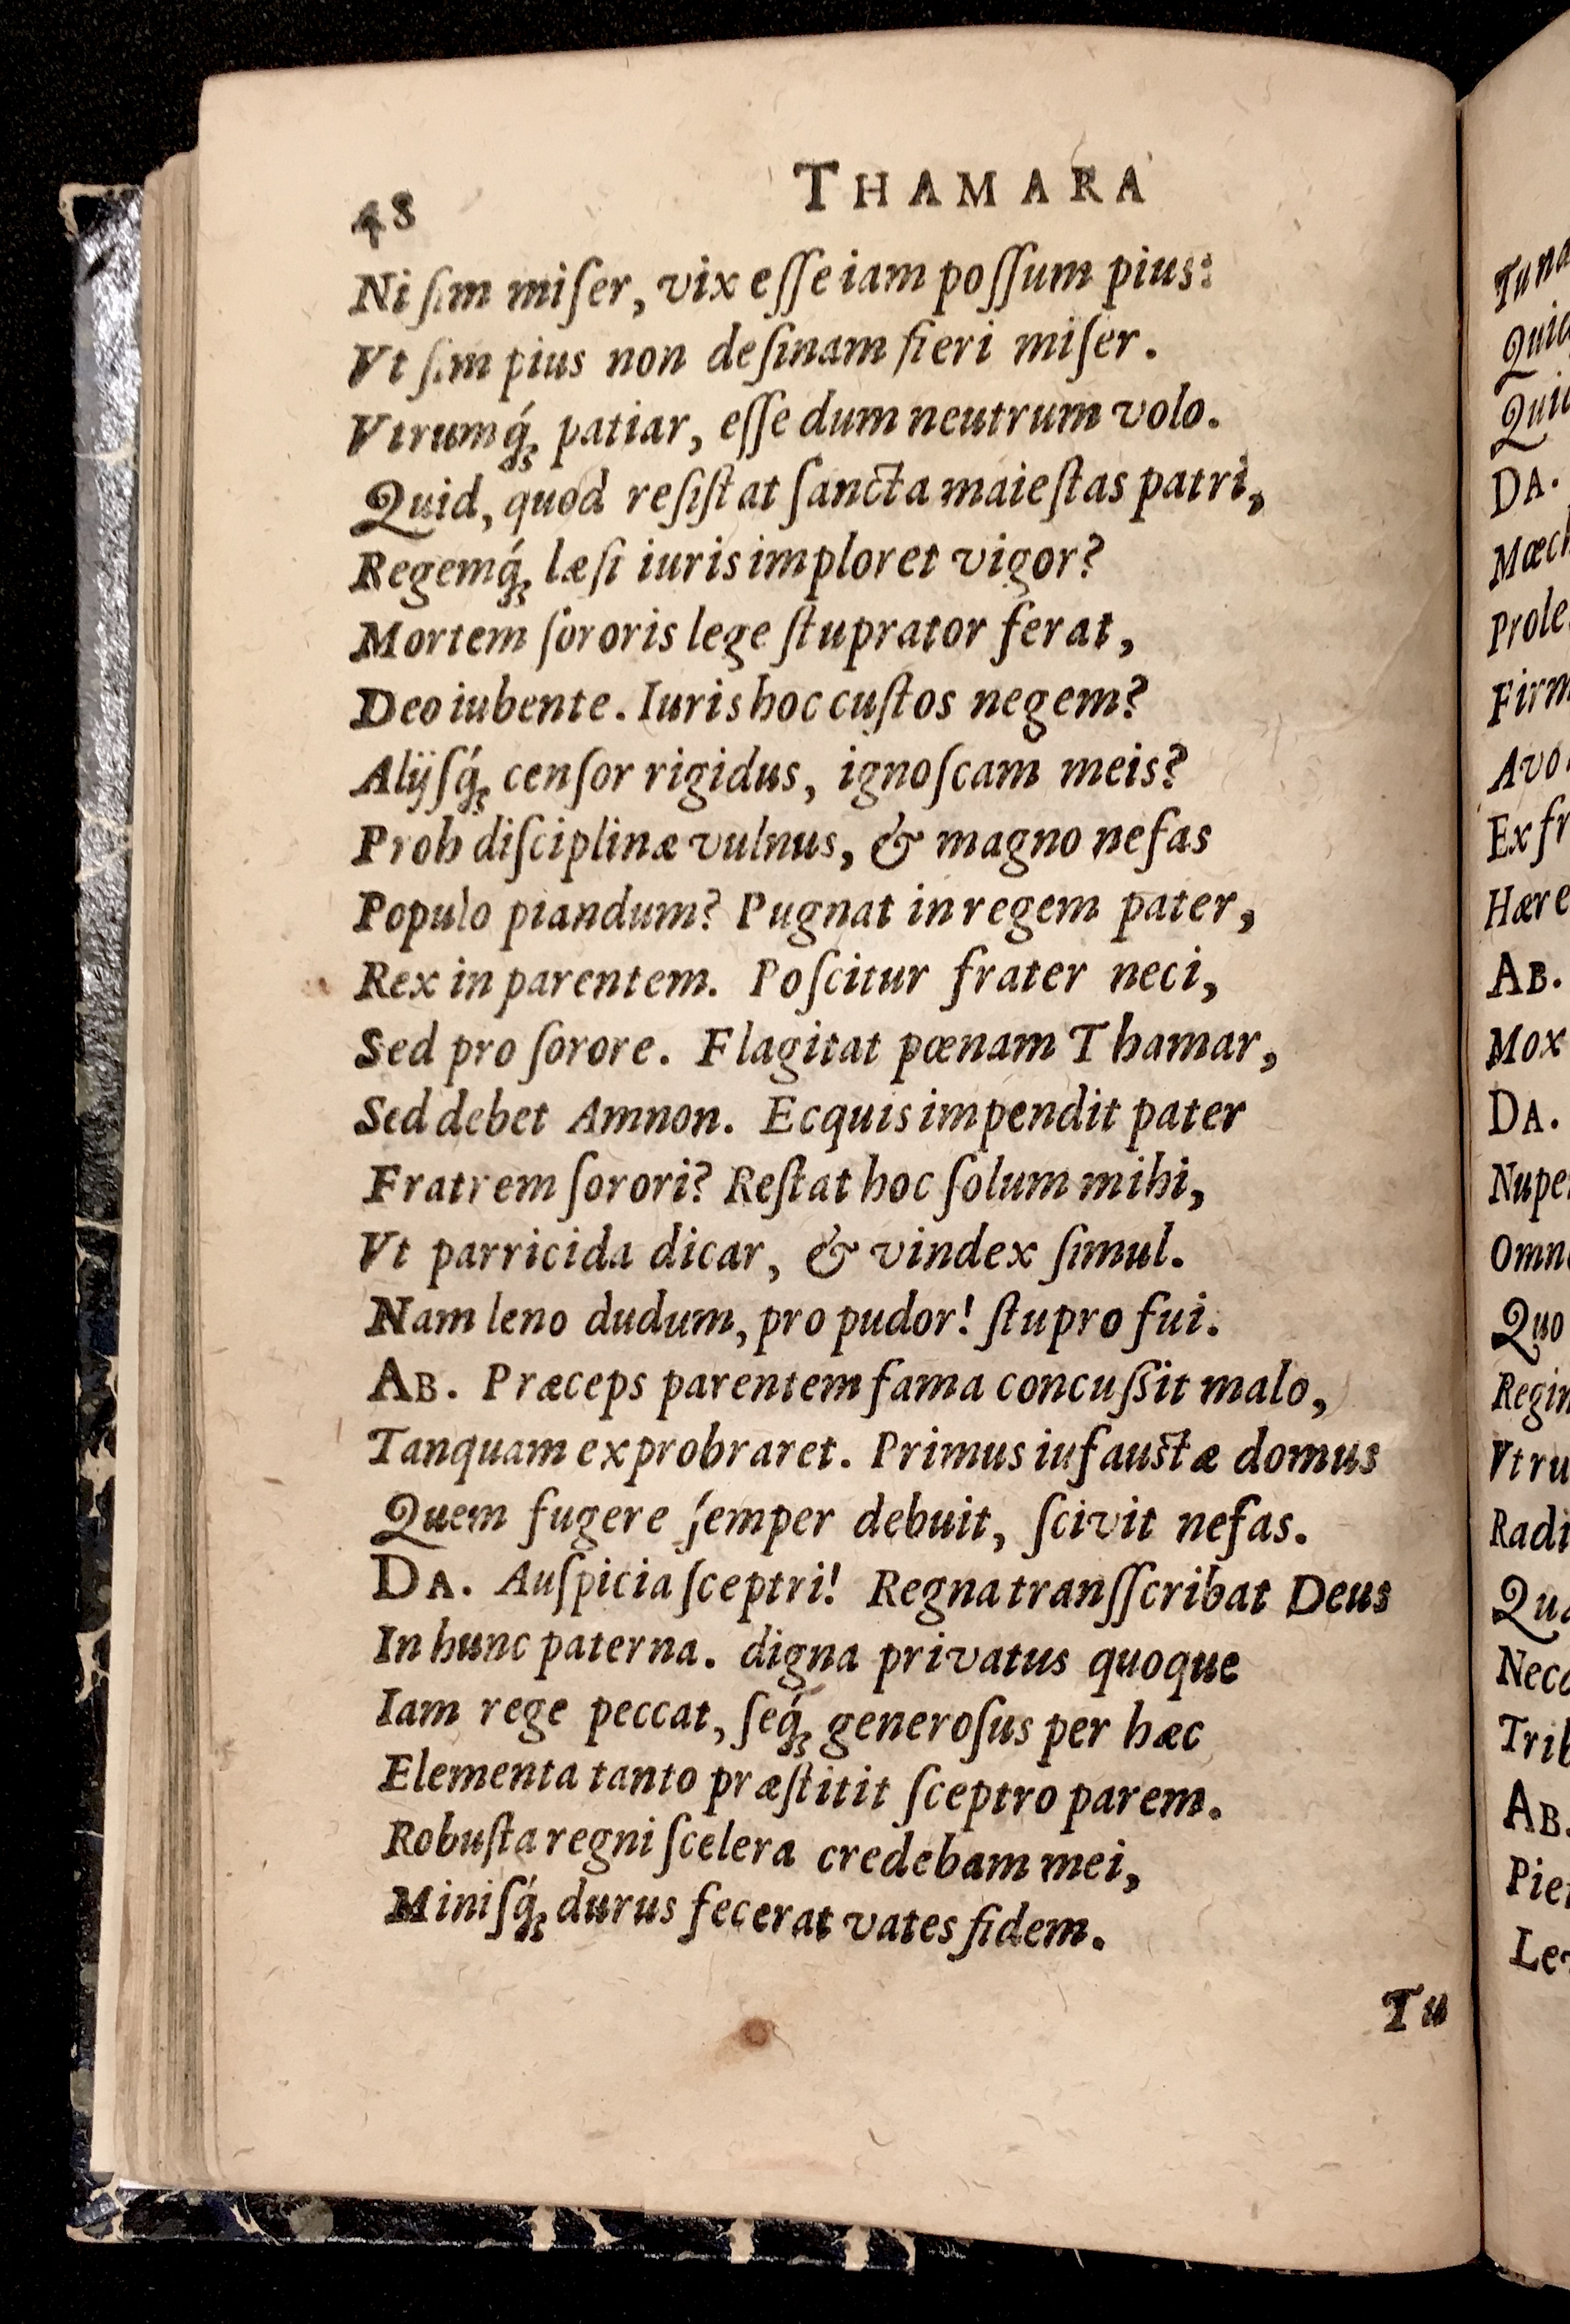 48 THAMARA
Ni ſim miſer, vix eſſe iam poſſum pius:
Vt ſim pius non deſinam fieri miſer.
Vtrumq́ꝫ patiar, eſſe dum neutrum volo.
Quid, quod reſiſtat ſancta maieſtas patri,
Regemq́ꝫ læſi iuris imploret vigor?
Mortem ſororis lege ſtuprator ferat,
Deo iubente. Iuris hoc cuſtos negem?
Alijſq́ꝫ cenſor rigidus, ignoſcam meis?
Proh diſciplinæ vulnus, & magno nefas
Populo piandum? Pugnat in regem pater,
Rex in parentem. Poſcitur frater neci,
Sed pro ſorore. Flagitat pœnam Thamar,
Sed debet Amnon. Ecquis impendit pater
Fratrem ſorori? Reſtat hoc ſolum mihi,
Vt parricida dicar, & vindex ſimul.
Nam leno dudum, pro pudor! ſtupro fui.
AB. Præceps parentem fama concuſsit malo,
Tanquam exprobraret. Primus iufauſtæ domus
Quem fugere ſemper debuit, ſcivit nefas.
DA. Auſpicia ſceptri! Regna tranſſcribat Deus
In hunc paterna. digna privatus quoque
Iam rege peccat, ſeq́ꝫ generoſus per hæc
Elementa tanto præſtitit ſceptro parem.
Robuſta regni ſcelera credebam mei,
Miniſq́ꝫ durus fecerat vates fidem.
Tu
DA.
Firm
AB.
Mox
DA.
Quo
AB.